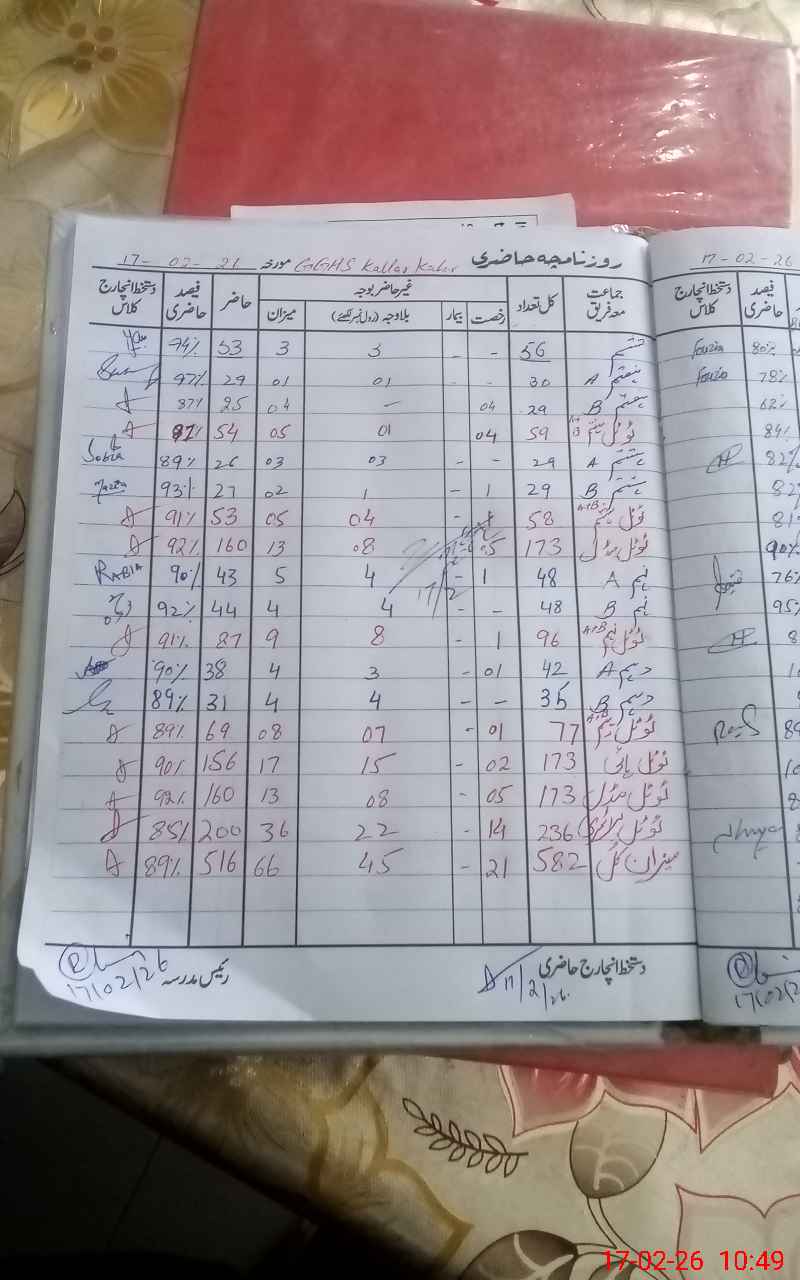 روزنامچہ حاضری GGHS Kallar Kahar مورخہ 17-02-26
جماعت معہ فریق کل تعداد غیر حاضر بوجہ حاضر فیصد حاضری دستخط انچارج کلاس
رخصت بیمار بلاوجہ (رول نمبر لکھئے) میزان
ششم 56 - - 3 3 53 94%
ہفتم A 30 - - 01 01 29 97%
ہفتم B 29 04 - 04 25 87%
ٹوٹل ہفتم A+B 59 04 01 05 54
ہشتم A 29 - - 03 03 26 89% Sobia
ہشتم B 29 1 - 1 02 27 93%
ٹوٹل ہشتم A+B 58 1 04 05 53 91%
ٹوٹل مڈل 173 05 08 13 160 92%
نہم A 48 1 - 4 5 43 90% RABIA
نہم B 48 - - 4 4 44 92%
ٹوٹل نہم A+B 96 1 - 8 9 87 91%
دہم A 42 01 - 3 4 38 90%
دہم B 35 - - 4 4 31 89%
ٹوٹل دہم A+B 77 01 - 07 08 69 89%
ٹوٹل ہائی 173 02 - 15 17 156 90%
ٹوٹل مڈل 173 05 - 08 13 160 92%
ٹوٹل پرائمری 236 14 - 22 36 200 85%
میزان کل 582 21 - 45 66 516 89%
دستخط انچارج حاضری 17/2/26
رئیس مدرسہ 17/02/26
17-02-26
فیصد حاضری دستخط انچارج کلاس
80% Fouzia
78% Fouzia
62%
84%
82%
82
81
90%
76%
95%
17/02/2
17-02-26 10:49